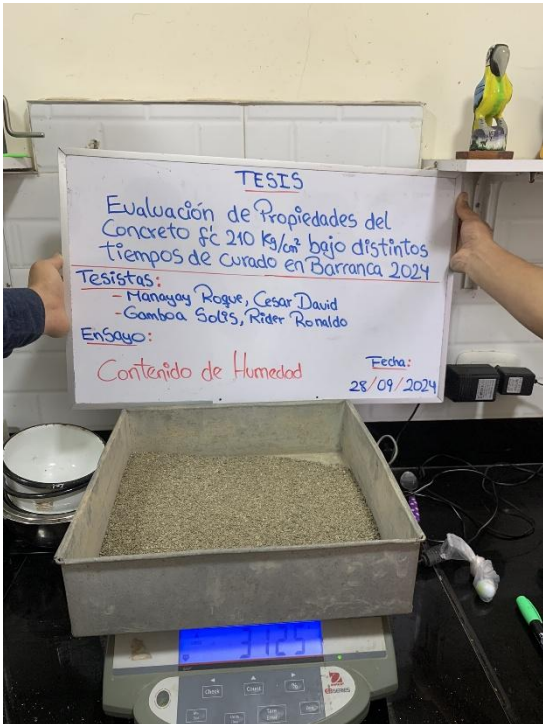 TESIS
Evaluación de Propiedades del
Concreto f'c 210 Kg/cm² bajo distintos
tiempos de curado en Barranca 2024
Tesistas:
- Manayay Roque, Cesar David
- Gamboa Solis, Rider Ronaldo
Ensayo:
Contenido de Humedad
Fecha:
28/09/2024
3125
OHAUS